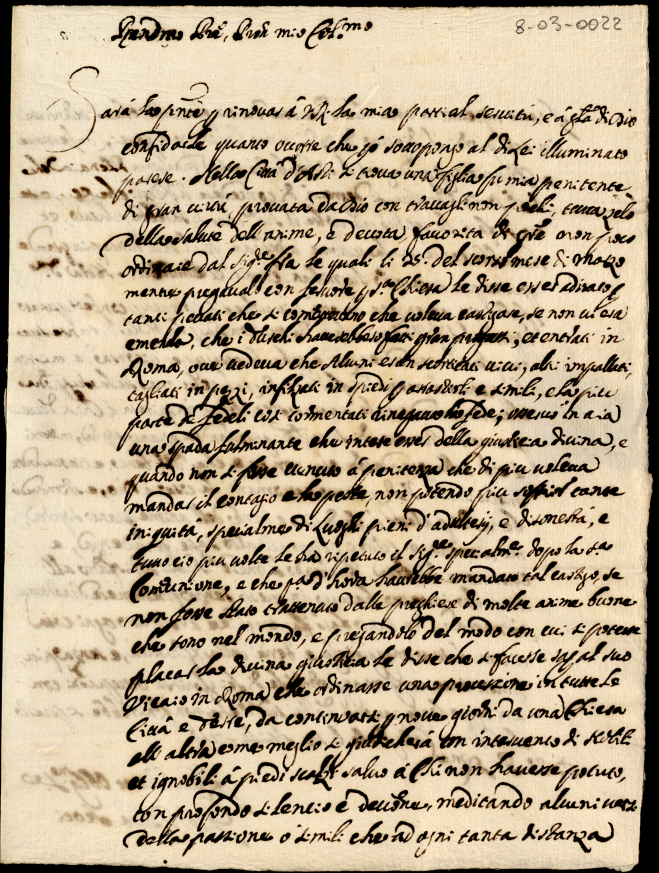 8-03-0022
Prõn mio
Sarà la pñte p rinovar à VR la mia parzial servitù, e à gla di Dio
confidarle quanto occorre che io sottopongo al di Lei illuminato
parere. Nella Città d'Asti si trova una figlia mia penitente
di gran virtù, provata da Dio con travagli non
della salute dell'anime, e devota, favorita di grẽ non poco
ordinarie dal Sigre fra le quali li 25. del scorso mese di Marzo
mentre pregava con fervore p sta Chiesa le disse esser adirato p
tanti peccati che si e che voleva castigare, se non vi era
emenda, che i Turchi haverebbero fatti gran progressi, et entrati in
Roma, ove vedeva che alcuni eran scorticati vivi, altri impallati,
tagliati in pezzi, infilzati in spiedi p arrostirli e simili, e la più
parte de fedeli così tormentati rinegavano la fede; in aria
una spada fulminante che intese esser della giustizia divina, e
quando non si fosse venuto à penitenza che di più voleva
mandar il contagio e la peste, non potendo più soffrir tante
iniquità, specialmte di Luoghi pieni d'adulterij, e disonestà, e
tutto ciò più volte le ha ripetuto il Sigre specialmte dopo la sta
Comunione, e che pa d'hora haurebbe mandato tal castigo, se
non fosse stato trattenuto dalle preghiere di molte anime buone
che sono nel mondo, e pregandolo del modo con cui si potesse
placar la divina giustizia le disse che si facesse saper al suo
Vicario in Roma che ordinasse una processione in tutte le
Città e Terre, da continuarsi p nove giorni da una Chiesa
all'altra come meglio si giudicherà con intervento di nobili
et ignobili à piedi scalzi salvo à chi non havesse potuto,
con profondo silenzio e devotne, meditando alcuni
della passione o simili che ad ogni tanta distanza